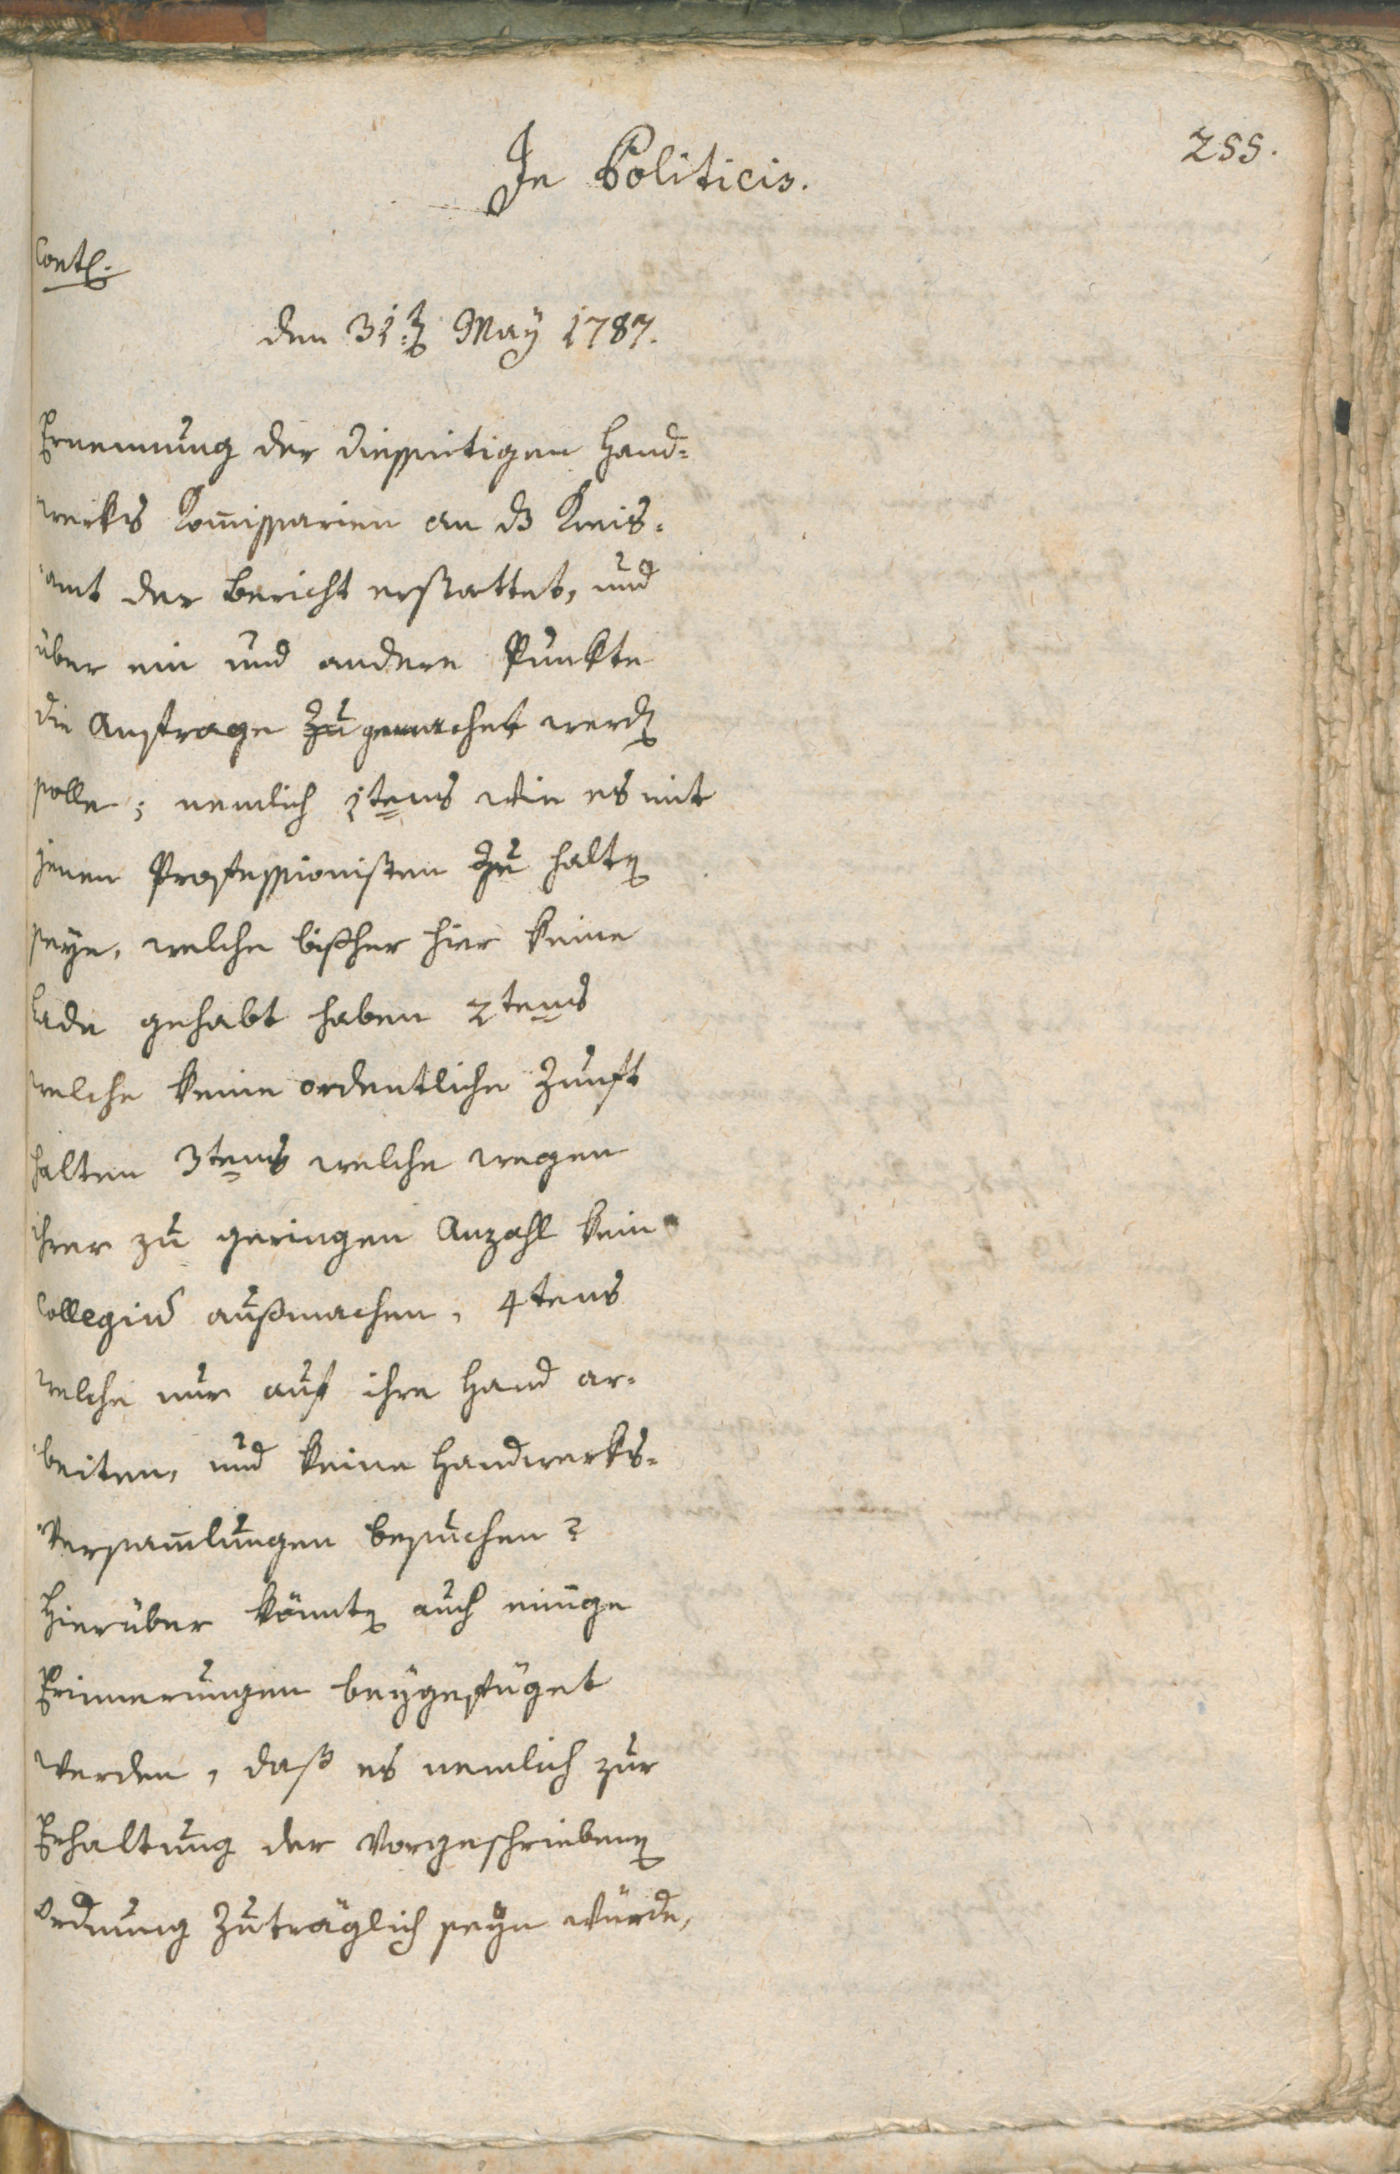 255.
In Politicis.
Cont.
den 31.ten May 1787.
Ernennung der diesseitigen Hand=
werks Com̄issarien an das Kreis=
amt der Bericht erstattet, und
über ein und andere Punkte
die Anfrage zu gemachet werden
solle; nemlich 1tens wie es mit
jenen Professionisten zu halten
seye, welche bißher hier keine
Lade gehabt haben 2tens
welche keine ordentliche Zunft
halten 3tens welche wegen
ihrer zu geringen Anzahl kein
Collegium außmachen, 4tens
welche nur auf ihre Hand ar=
beiten, und keine Handwerks=
Versam̄lungen besuchen?
Hierüber könnten auch einige
Erinnerungen beygefüget
werden, daß es nemlich zur
Erhaltung der vorgeschriebenen
Ordnung zuträglich seyn würde,